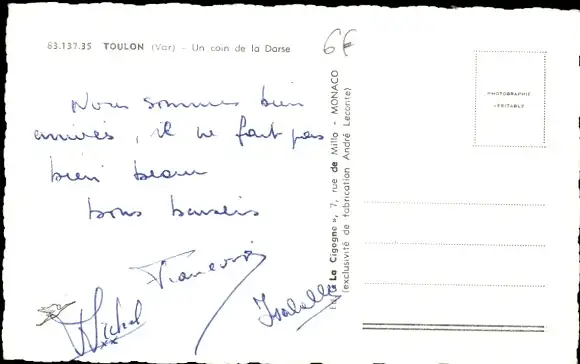 83.137.35 TOULON (Var) - Un coin de la Darse
6F
Nous sommes bien
arrivés, il ne fait pas
bien beau
bons baisers
Michel
Isabelle
"La Cigogne", 7, rue de Millo - MONACO
(exclusivité de fabrication André Leconte)
PHOTOGRAPHIE
VÉRITABLE